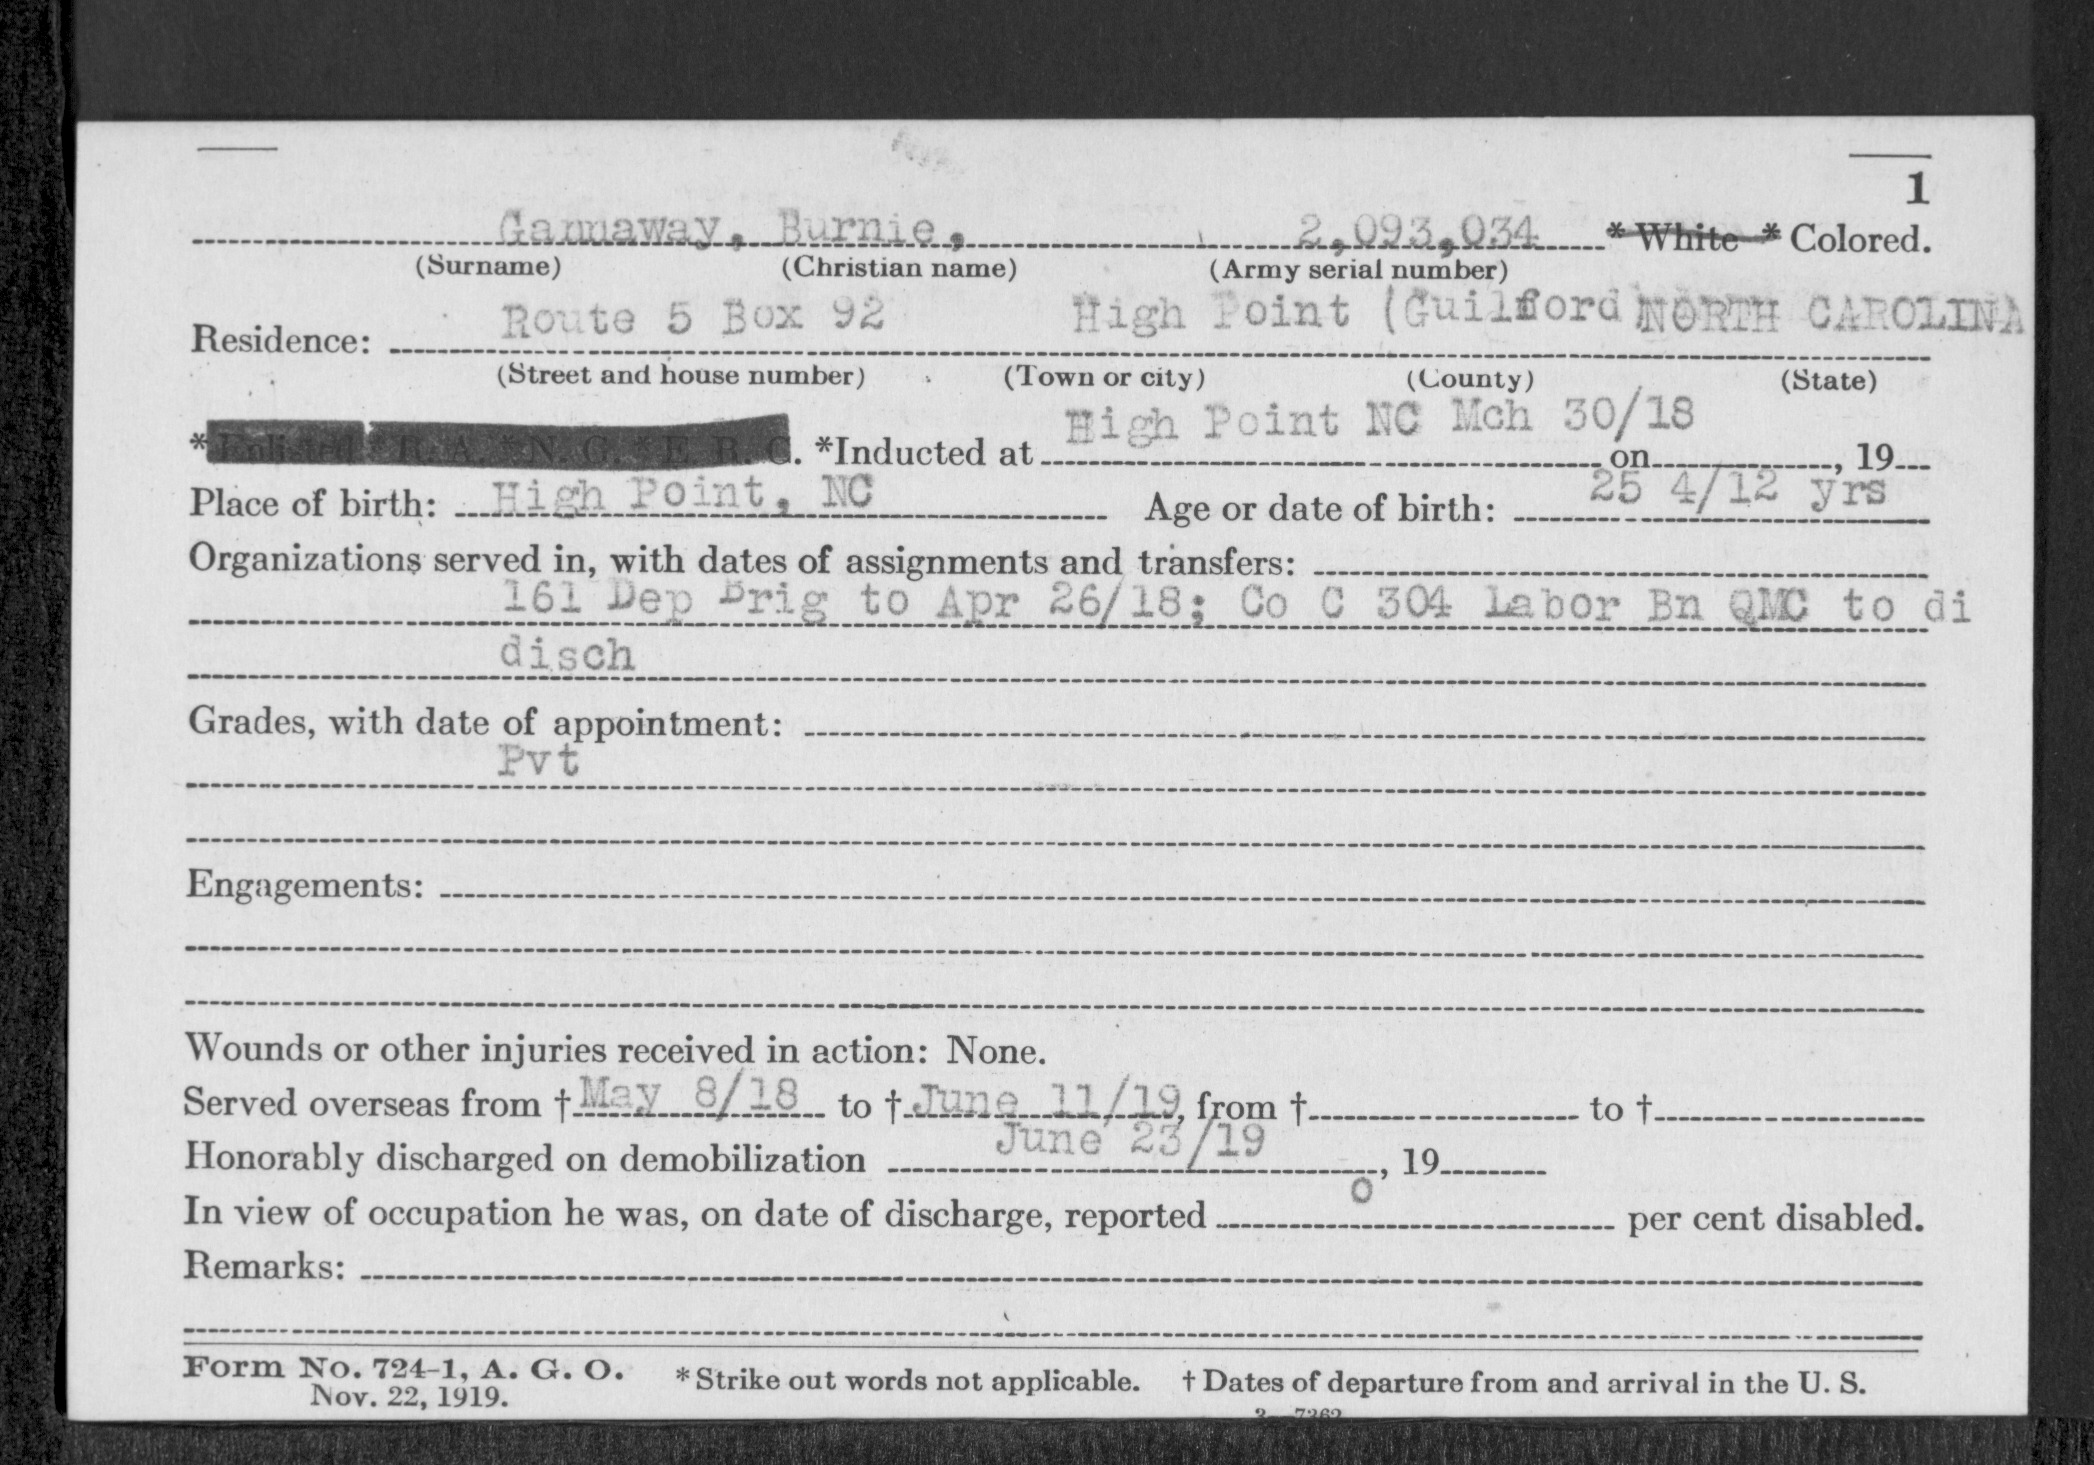 1
Gannaway, Burnie, 2,093,034 * White * Colored.
(Surname) (Christian name) (Army serial number)
Route 5 Box 92 High Point (Guilford NORTH CAROLINA
Residence:
(Street and house number) (Town or city) (County) (State)
High Point NC Mch 30/18
* Enlisted * R. A. * N. G. * E. R. C. *Inducted at on , 19
Place of birth: High Point, NC Age or date of birth: 25 4/12 yrs
Organizations served in, with dates of assignments and transfers:
161 Dep Brig to Apr 26/18; Co C 304 Labor Bn QMC to di
disch
Grades, with date of appointment:
Pvt
Engagements:
Wounds or other injuries received in action: None.
Served overseas from † May 8/18 to † June 11/19, from † to †
Honorably discharged on demobilization June 23/19, 19
In view of occupation he was, on date of discharge, reported 0 per cent disabled.
Remarks:
Form No. 724-1, A. G. O. * Strike out words not applicable. † Dates of departure from and arrival in the U. S.
Nov. 22, 1919.
3—7362